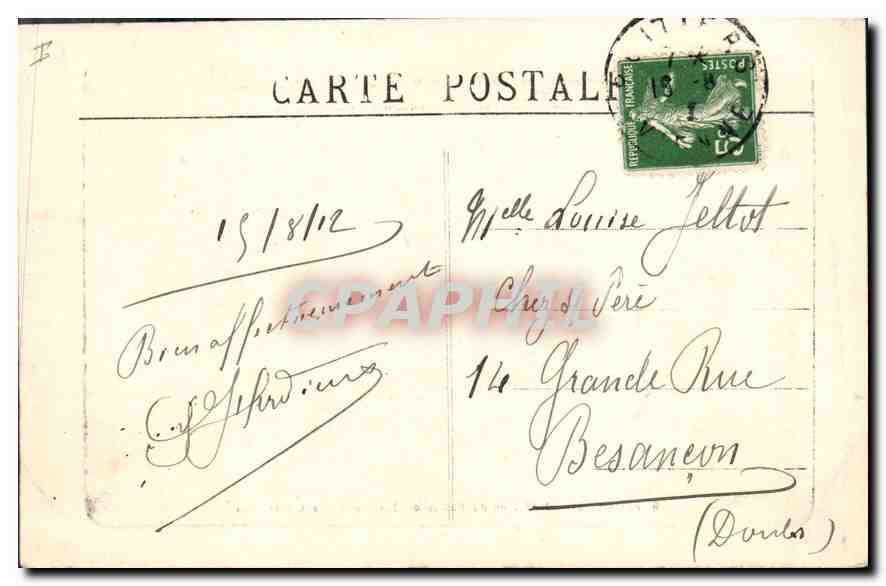 CARTE POSTALE
RÉPUBLIQUE FRANÇAISE
POSTES
15/8/12
Bien affectueusement
Melle Louise Jeltot
Chez St Père
14 Grande Rue
Besançon
(Doubs)
CPAPHIL